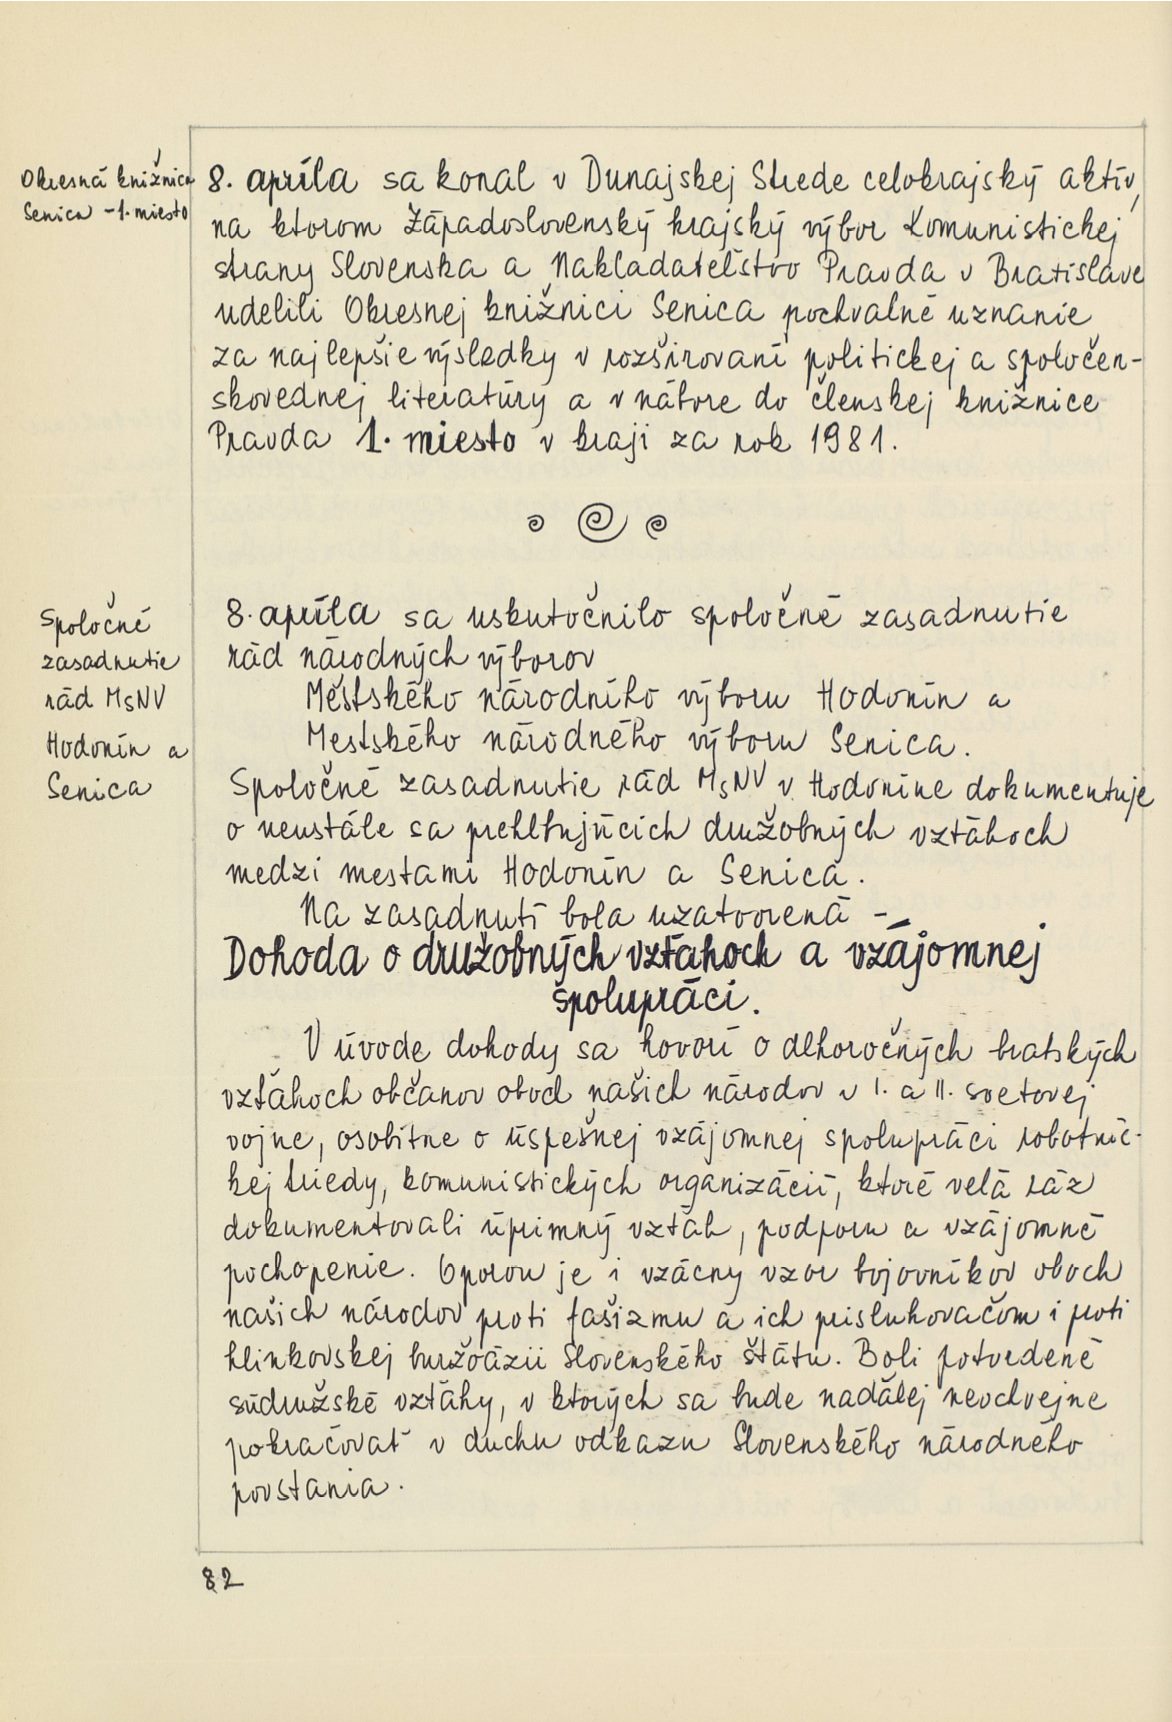 Okresná knižnica
Senica - 1. miesto
8. apríla sa konal v Dunajskej Strede celokrajský aktív,
na ktorom Západoslovenský krajský výbor Komunistickej
strany Slovenska a Nakladateľstvo Pravda v Bratislave
udelili Okresnej knižnici Senica pochvalné uznanie
za najlepšie výsledky v rozširovaní politickej a spoločen-
skovednej literatúry a v nábore do členskej knižnice
Pravda 1. miesto v kraji za rok 1981.
Spoločné
zasadnutie
rád MsNV
Hodonín a
Senica
8. apríla sa uskutočnilo spoločné zasadnutie
rád národných výborov
Městského národního výboru Hodonín a
Mestského národného výboru Senica.
Spoločné zasadnutie rád MsNV v Hodoníne dokumentuje
o neustále sa prehlbujúcich družobných vzťahoch
medzi mestami Hodonín a Senica.
Na zasadnutí bola uzatvorená -
Dohoda o družobných vzťahoch a vzájomnej
spolupráci.
V úvode dohody sa hovorí o dlhoročných bratských
vzťahoch občanov oboch našich národov v I. a II. svetovej
vojne, osobitne o úspešnej vzájomnej spolupráci robotníc-
kej triedy, komunistických organizácií, ktoré veľa ráz
dokumentovali úprimný vzťah, podporu a vzájomné
pochopenie. Oporou je i vzácny vzor bojovníkov oboch
našich národov proti fašizmu a ich prisluhovačom i proti
hlinkovskej buržoázii Slovenského štátu. Boli potvrdené
súdružské vzťahy, v ktorých sa bude naďalej neochvejne
pokračovať v duchu odkazu Slovenského národného
povstania.
82